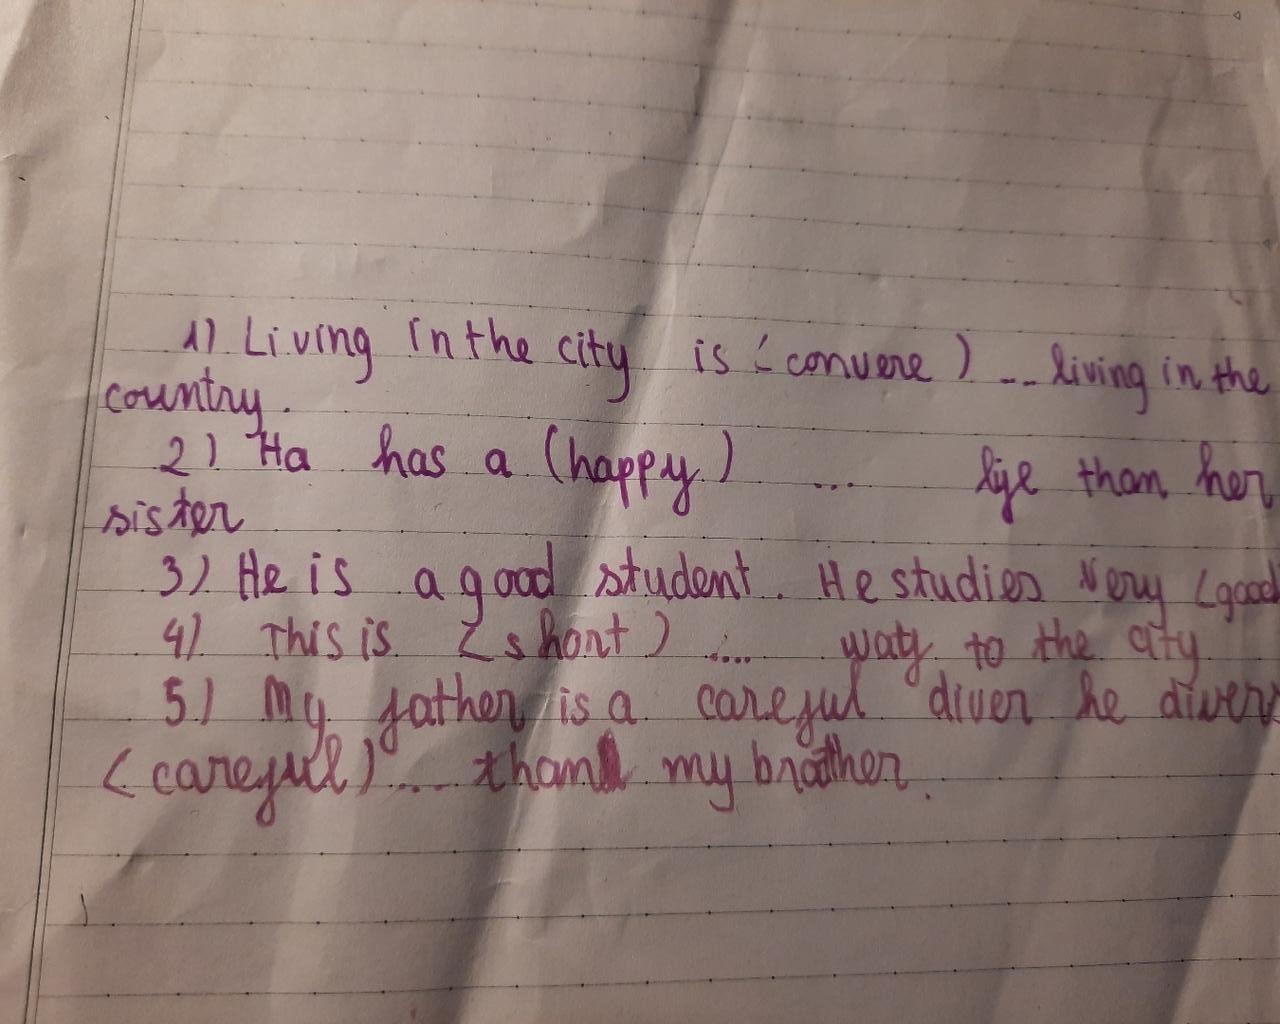 1) Living in the city is (convere) ... living in the
country.
2) Ha has a (happy) ... life than her
sister
3) He is a good student. He studies very (good
4) This is (short) .... way to the city
5) My father is a careful diver he divers
(careful) .... than my brother.